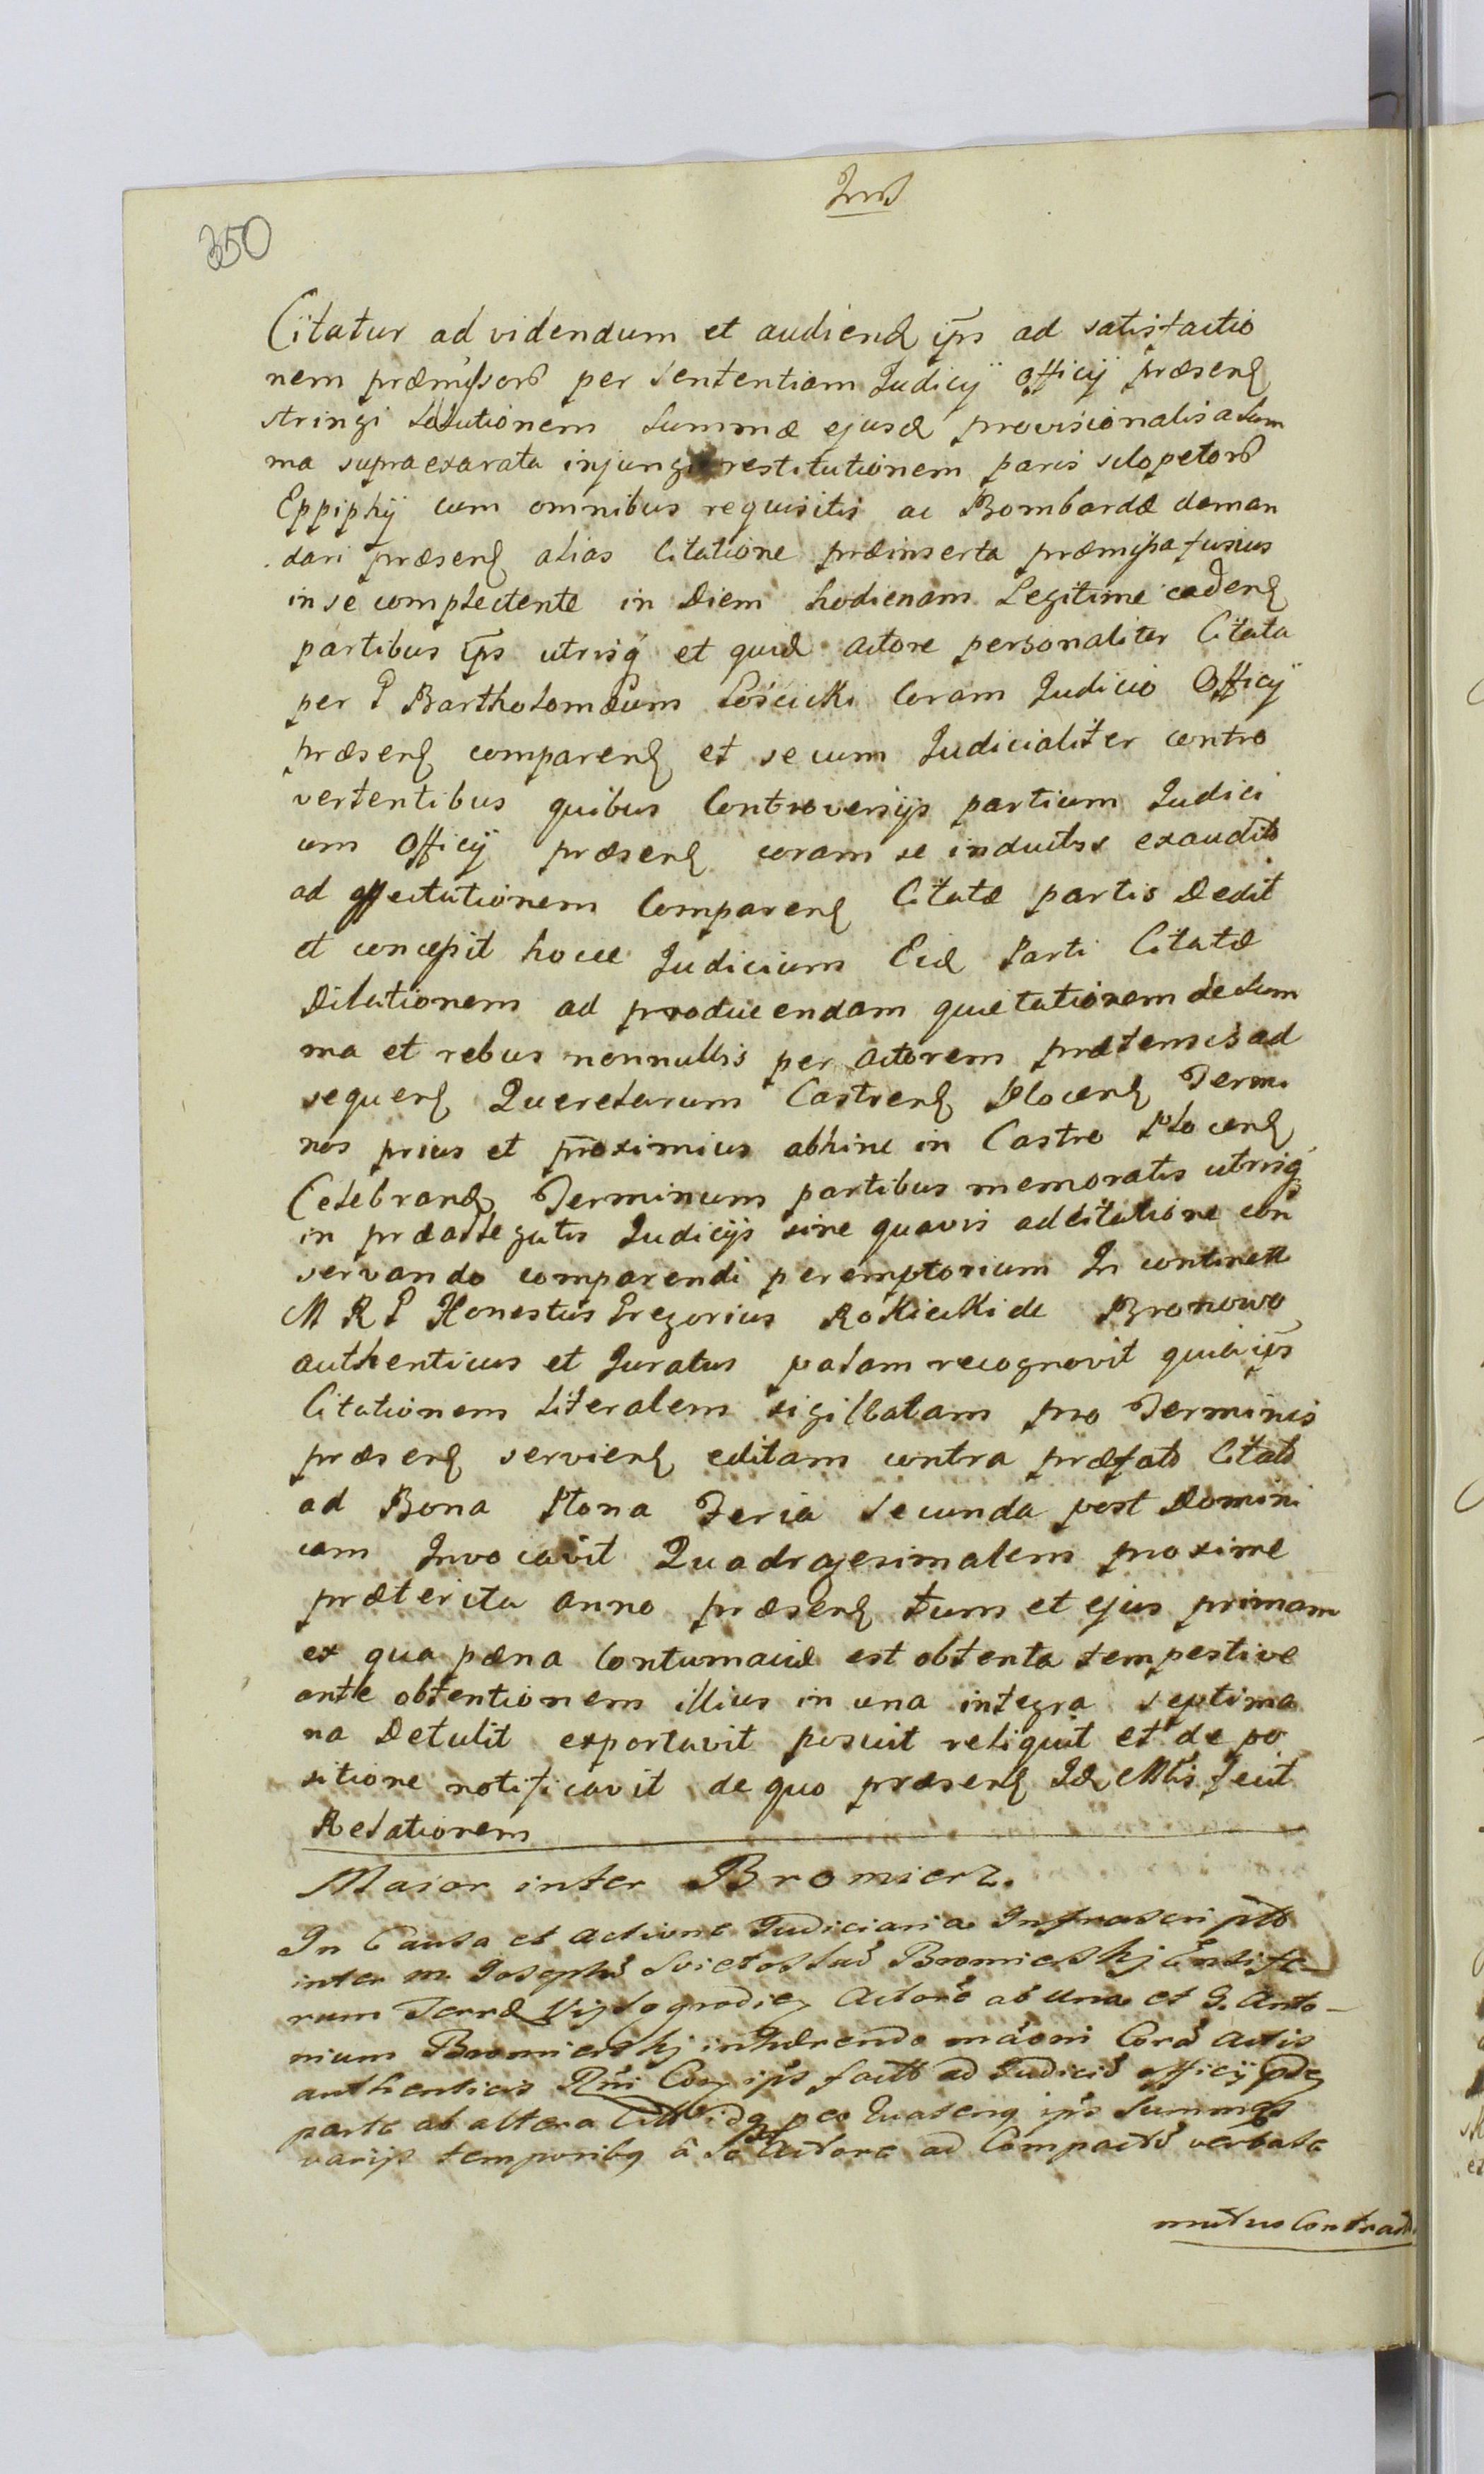 350
Citatur ad videndum et audiend ips ad satisfactio
nem præmissor per Sententiam Judicy Officy præsen
stringi Solutionem Summæ ejusd provisionalis a Sum
ma supraexarata injungi restitutionem paris sclopetor
Eppiphij cum omnibus requisitis ac Bombardæ deman
dari præsen alias Citatione præinserta præmissa fusius
in se complectente in Diem hodiernam Legitime caden
partibus ips utrisq et quid Actore personaliter Citata
per P Bartholomæum Lościcki Coram Judicio Officij
præsen comparen et secum Judicialiter contro
vertentibus quibus Controversijs partium Judici
um Officij præsen coram se inductis exaudit
ad affectationem Comparen Citatæ partis Dedit
et concessit hocce Judicium Eid Parti Citatæ
Dilationem ad producendam quietationem de Sum
ma et rebus nonnullis per Actorem prætensis ad
sequen Querelarum Castren Plocen Termi
nos prius et proximius abhinc in Castro Plocen
Celebrand Terminum partibus memoratis utrisq
in præallegatis Judicijs sine quavis adcitatione con
servando comparendi peremptorium In continett
M R P Honestus Gregorius Rokicki de Bronowo
authenticus et Juratus palam recognovit quia ips
Citationem Literalem sigillatam pro Terminis
præsen servien editam contra præfat Citat
ad Bona Płona Feria Secunda post Domini
cam Invocavit Quadragesimalem proxime
præterita anno præsen tum et ejus primam
ex qua pæna Contumaciæ est obtenta tempestive
ante obtentionem illius in una integra septima
na Detulit exportavit posuit reliquit et de po
sitione notificavit de quo præsen Id Mtis fecit
Relationem
Maior inter Bromiers.
In Causa et Actione Judiciaria Infrascripto
inter M. Josephũ Svietoslaũ Bromierskj Ensife-
rum Terræ Vyssogrodien Actorẽ ab una et G. Anto-
nium Bromierskj inhærendo Corã Actis
authenticis Rni ips factt ad Judiciũ officij pden
parte ab altera Citt pro Quatenq ips Summas
varijs temporibq â Actore ad Compactũ verbale
mutuo Contract